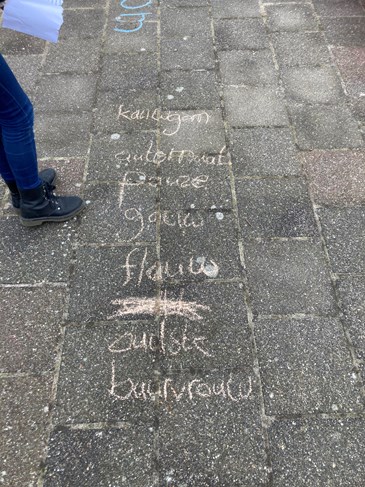 kauwgom
automaat
pauze
gauw
flauw
oudste
buurvrouw